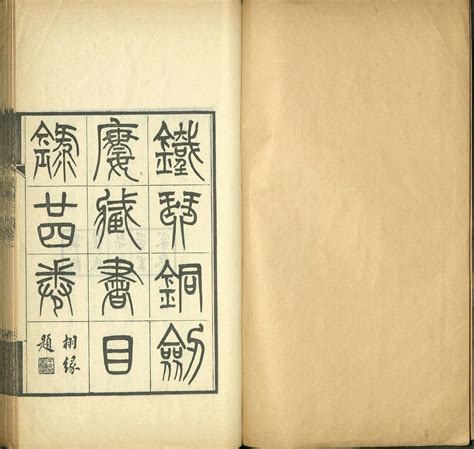 鐵琴銅劍
廔藏書目
錄廿四卷
栩緣
題